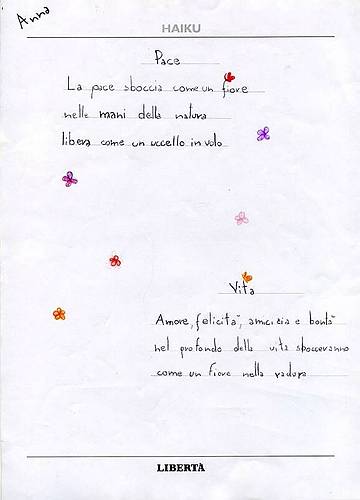 Anna
HAIKU
Pace
La pace sboccia come un fiore
nelle mani della natura
libera come un uccello in volo
Vita
Amore, felicita", amicizia e bonta"
nel profondo della vita sbocceranno
come un fiore nella radura
LIBERTÀ